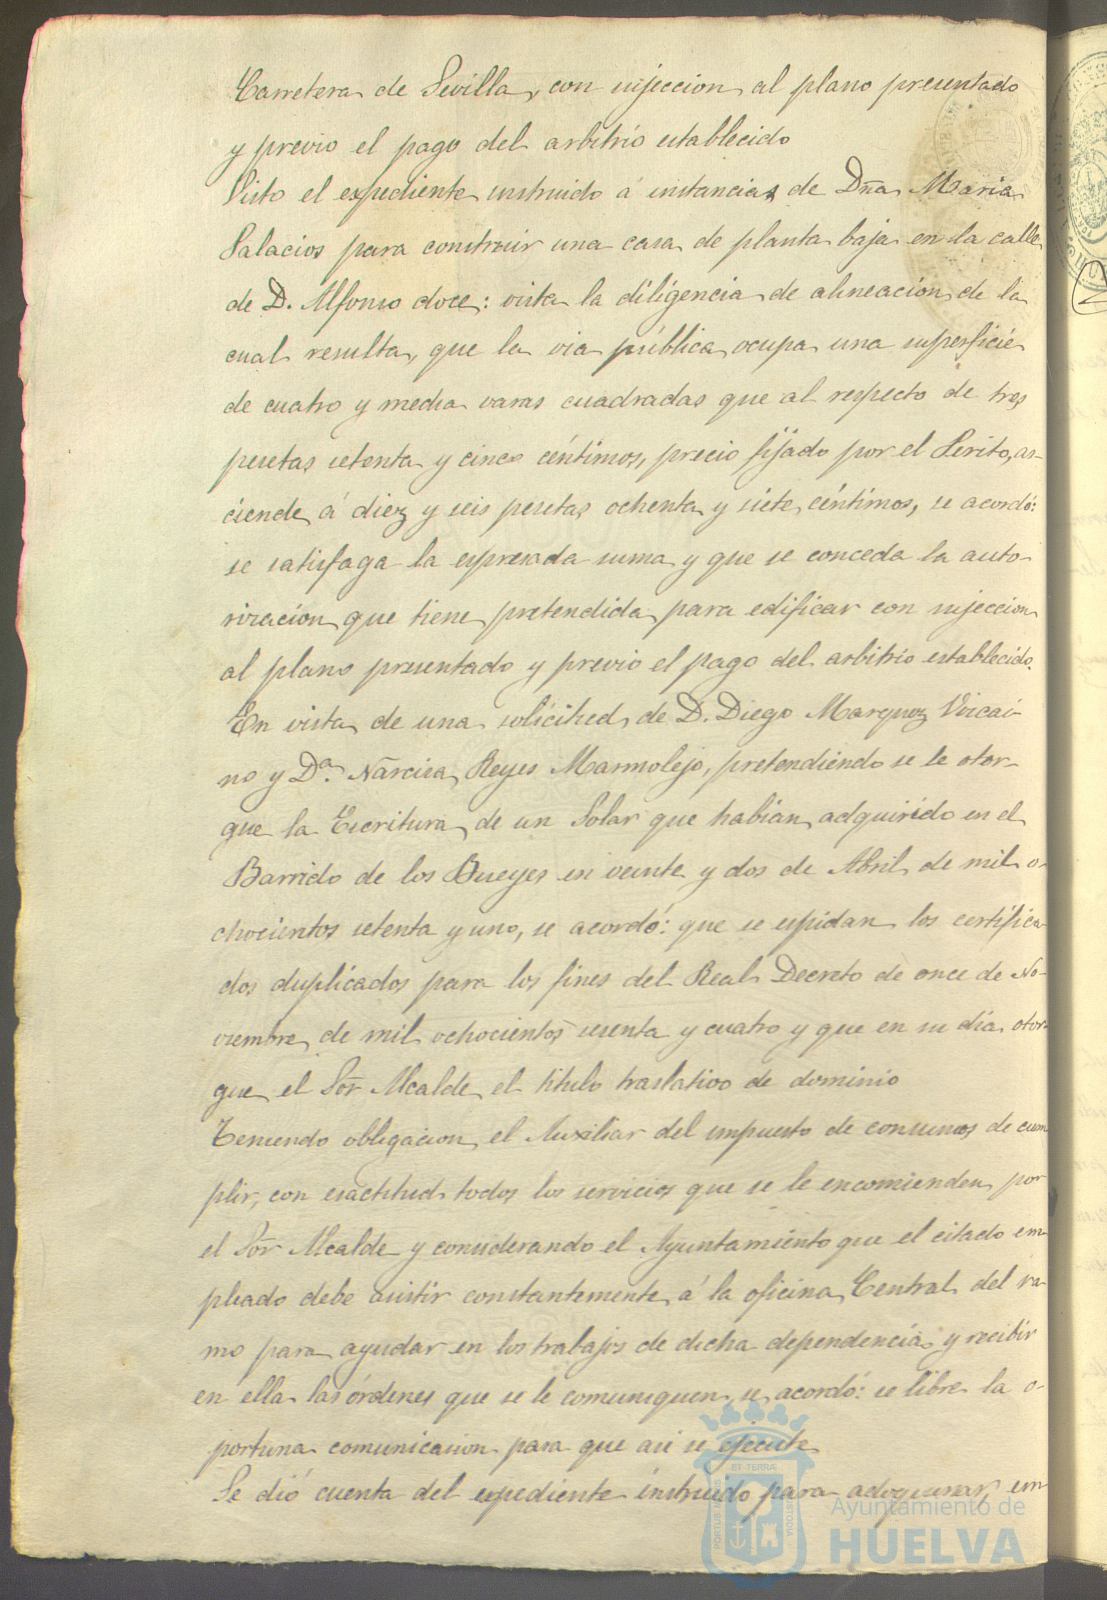 Carretera de Sevilla, con sujeccion al plano presentado
y previo el pago del arbitrio establecido
Visto el expediente instruido á instancias de Dña Maria
Palacios para construir una casa de planta baja en la calle
de D. Alfonso doce: vista la diligencia de alineacion de la
cual resulta, que la via pública ocupa una superficie
de cuatro y media varas cuadradas que al respecto de tres
pesetas setenta y cinco céntimos, precio fijado por el Perito, as-
ciende á diez y seis pesetas ochenta y siete céntimos, se acordó:
se satisfaga la espresada suma y que se conceda la auto-
rizacion que tiene pretendida para edificar con sujeccion
al plano presentado y previo el pago del arbitrio establecido.
En vista de una solicitud de D. Diego Marquez Vizcai-
no y Dª Narcisa Reyes Marmolejo, pretendiendo se le otor-
gue la Escritura de un Solar que habian adquirido en el
Barrido de los Bueyes en veinte y dos de Abril de mil o-
chocientos setenta y uno, se acordó: que se espidan los certifica
dos duplicados para los fines del Real Decreto de once de No-
viembre de mil ochocientos sesenta y cuatro y que en su dia otor-
gue el Sor Alcalde el titulo traslativo de dominio
Teniendo obligacion el Auxiliar del impuesto de consumos de cum
plir, con esactitud todos los servicios que se le encomienden por
el Sor Alcalde y considerando el Ayuntamiento que el citado em-
pleado debe asistir constantemente á la oficina Central del ra-
mo para ayudar en los trabajos de dicha dependencia y recibir
en ella las órdenes que se le comuniquen, se acordó: se libre la o-
portuna comunicacion para que asi se ejecute
Se dió cuenta del espediente instruido para adoquinar, em
ET TERRÆ
PORTUS MARIS
CUSTODIA
Ayuntamiento de
HUELVA